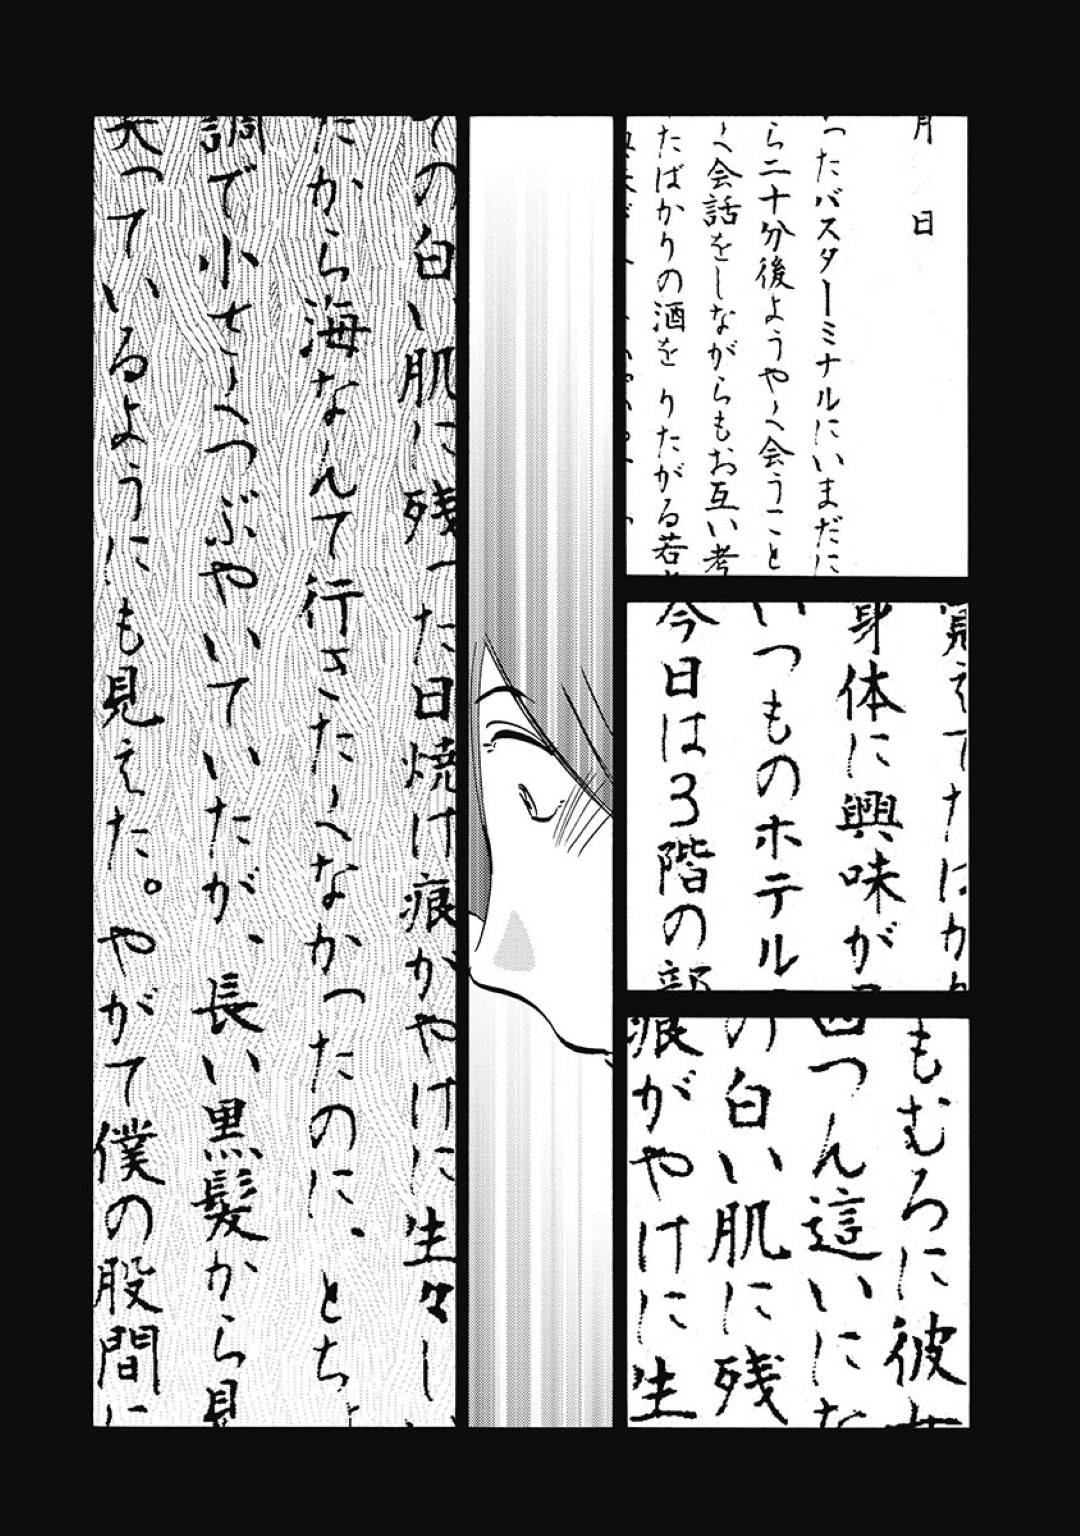 月　日
ったバスターミナルにいまだに
ら二十分後ようやく会うこと
く会話をしながらもお互い考
たばかりの酒を りたがる若
覚えてたばか
身体に興味が
いつものホテル
今日は3階の部
もむろに彼女
四つん這いにな
の白い肌に残
痕がやけに生
ての白い肌に残った日焼け痕がやけに生々しい
だから海なんて行きたくなかったのに、とち
調で小さくつぶやいていたが、長い黒髪から見
笑っているようにも見えた。やがて僕の股間に